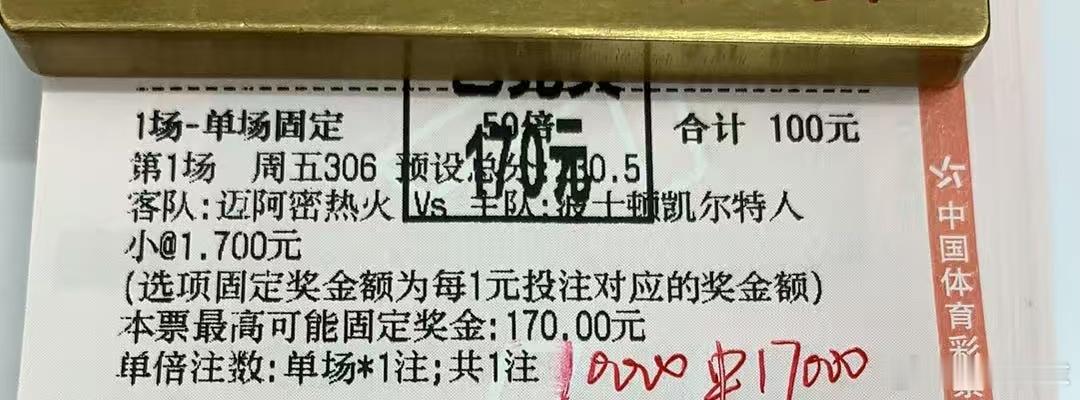 1场-单场固定 50倍 合计 100元
170元
第1场 周五306 预设总分:230.5
客队:迈阿密热火 Vs 主队:波士顿凯尔特人
小@1.700元
(选项固定奖金额为每1元投注对应的奖金额)
本票最高可能固定奖金:170.00元
单倍注数:单场*1注;共1注
10000中17000
中国体育彩票